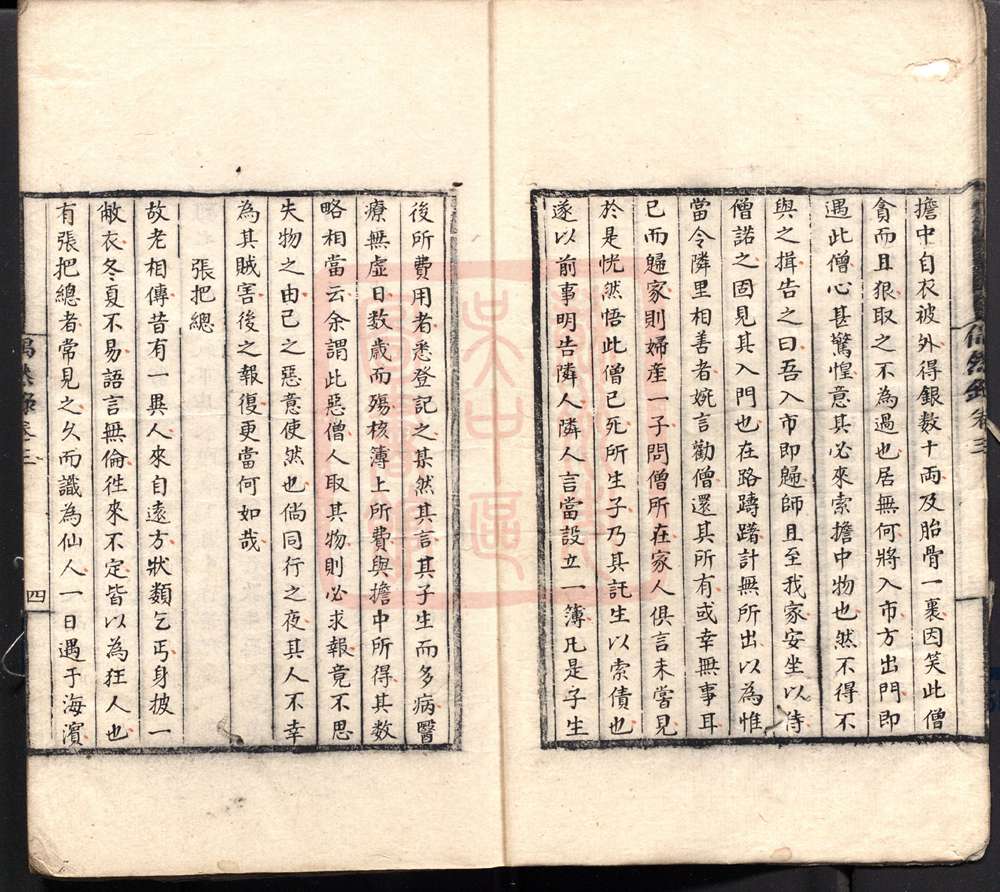 擔中自衣被外得銀數十两及胎骨一裹因笑此僧
貪而且狠取之不為過也居無何將入市方出門即
遇此僧心甚驚惶意其必來索擔中物也然不得不
與之揖告之曰吾入市即歸師且至我家安坐以待
僧諾之囬見其入門也在路躊躇計無所出以為惟
當令隣里相善者婉言勸僧還其所有或幸無事耳
已而歸家則婦産一子問僧所在家人俱言未嘗見
於是恍然悟此僧已死所生子乃其託生以索債也
遂以前事明告隣人隣人言當設立一簿凡是子生
後所費用者悉登記之某然其言其子生而多病醫
療無虛日数歲而殤核簿上所費與擔中所得其数
略相當云余謂此惡僧人取其物則必求報竟不思
失物之由己之惡意使然也倘同行之夜其人不幸
為其賊害後之報復更當何如哉
張把總
故老相傳昔有一異人來自遠方狀類乞丐身披一
敝衣冬夏不易語言無倫徃來不定皆以為狂人也
有張把總者常見之久而識為仙人一日遇于海濱
偶然錄 卷三
四